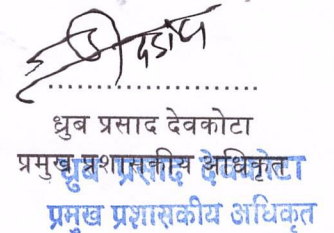 ध्रुब प्रसाद देवकोटा
प्रमुख प्रशासकीय अधिकृत
ध्रुब प्रसाद देवकोटा
प्रमुख प्रशासकीय अधिकृत